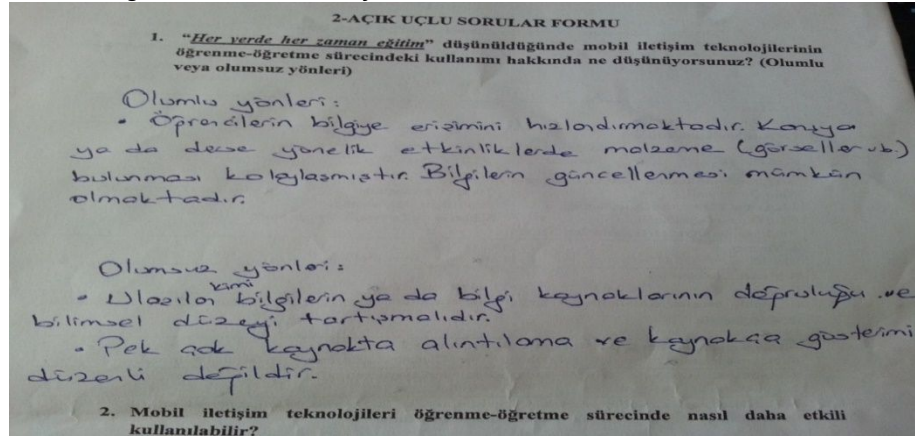 2-AÇIK UÇLU SORULAR FORMU
1. "Her yerde her zaman eğitim" düşünüldüğünde mobil iletişim teknolojilerinin
öğrenme-öğretme sürecindeki kullanımı hakkında ne düşünüyorsunuz? (Olumlu
veya olumsuz yönleri)
Olumlu yönleri:
• Öğrencilerin bilgiye erişimini hızlandırmaktadır. Konuya
ya da derse yönelik etkinliklerde malzeme (görseller vb.)
bulunması kolaylaşmıştır. Bilgilerin güncellenmesi mümkün
olmaktadır.
Olumsuz yönleri:
kimi
• Ulaşılan bilgilerin ya da bilgi kaynaklarının doğruluğu ve
bilimsel düzeyi tartışmalıdır.
• Pek çok kaynakta alıntılama ve kaynakça gösterimi
düzenli değildir.
2. Mobil iletişim teknolojileri öğrenme-öğretme sürecinde nasıl daha etkili
kullanılabilir?